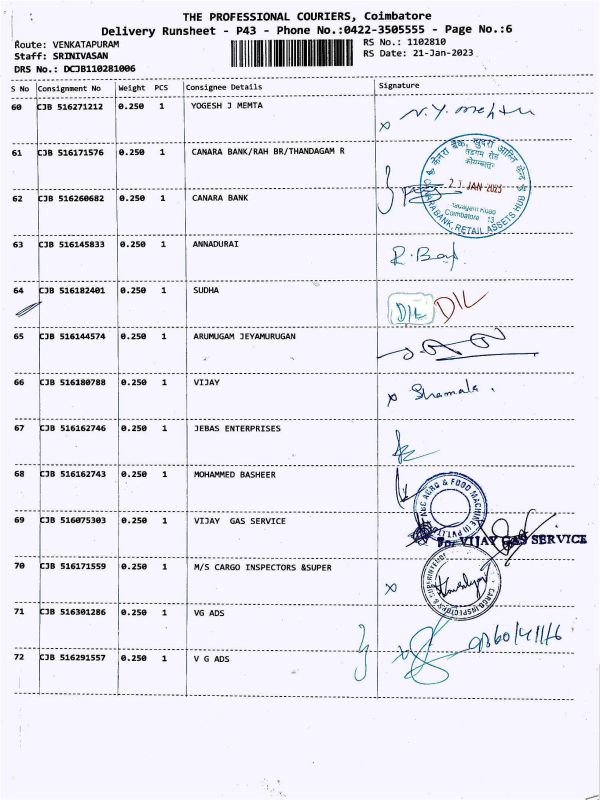 THE PROFESSIONAL COURIERS, Coimbatore
Delivery Runsheet - P43 - Phone No.:0422-3505555 - Page No.:6
Route: VENKATAPURAM RS No.: 1102810
Staff: SRINIVASAN RS Date: 21-Jan-2023
DRS No.: DCJB110281006
S No Consignment No Weight PCS Consignee Details Signature
60 CJB 516271212 0.250 1 YOGESH J MEMTA
x N.Y. Mehta
61 CJB 516171576 0.250 1 CANARA BANK/RAH BR/THANDAGAM R
केनरा बैंक, खुदरा आस्ति केन्द्र
तडगम रोड
कोयम्बत्तूर
JAN 2023
Thadagam Road
Coimbatore 13
CANARA BANK, RETAIL ASSETS HUB
62 CJB 516260682 0.250 1 CANARA BANK
63 CJB 516145833 0.250 1 ANNADURAI
64 CJB 516182401 0.250 1 SUDHA
DIL DIL
65 CJB 516144574 0.250 1 ARUMUGAM JEYAMURUGAN
66 CJB 516180788 0.250 1 VIJAY
x Shamala.
67 CJB 516162746 0.250 1 JEBAS ENTERPRISES
68 CJB 516162743 0.250 1 MOHAMMED BASHEER
ABC AGRO & FOOD MACHINE (I) PVT.LTD
69 CJB 516075303 0.250 1 VIJAY GAS SERVICE
For VIJAY GAS SERVICE
70 CJB 516171559 0.250 1 M/S CARGO INSPECTORS &SUPER
x
CARGO INSPECTORS & SUPERINTENDE
71 CJB 516301286 0.250 1 VG ADS
72 CJB 516291557 0.250 1 V G ADS
x